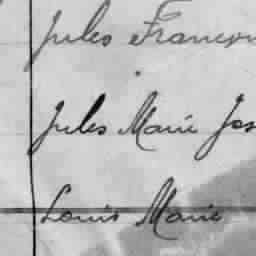 Jules François
Jules Marie Jos
Louis Marie